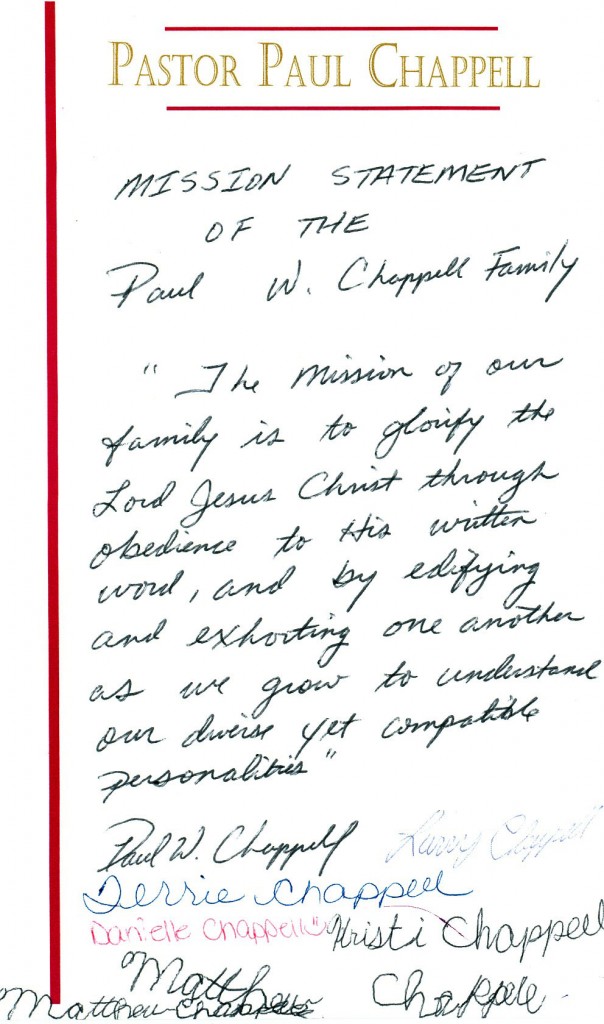 PASTOR PAUL CHAPPELL
MISSION STATEMENT
OF THE
Paul W. Chappell Family
" The mission of our
family is to glorify the
Lord Jesus Christ through
obedience to His written
word, and by edifying
and exhorting one another
as we grow to understand
our diverse yet compatible
personalities"
Paul W. Chappell Larry Chappell
Terrie Chappell
Danielle Chappell Kristi Chappell
Matthew Chappelle
Matthew Chappelle